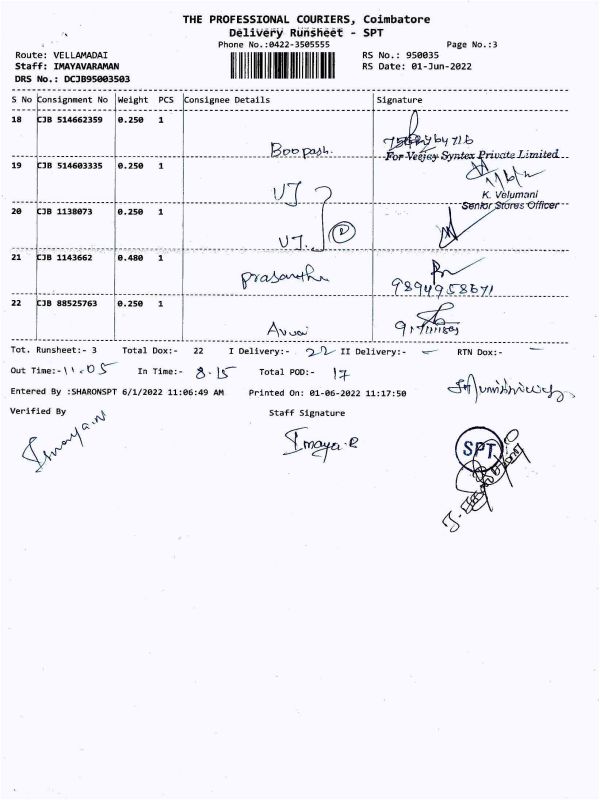 THE PROFESSIONAL COURIERS, Coimbatore
Delivery Runsheet - SPT
Phone No.:0422-3505555
Page No.:3
Route: VELLAMADAI
RS No.: 950035
Staff: IMAYAVARAMAN
RS Date: 01-Jun-2022
DRS No.: DCJB95003503
S No Consignment No Weight PCS Consignee Details Signature
18 CJB 514662359 0.250 1
Boopash.
For Veejay Syntex Private Limited
19 CJB 514603335 0.250 1
VJ
K. Velumani
Senior Stores Officer
20 CJB 1138073 0.250 1
VJ. 2
21 CJB 1143662 0.480 1
prasanth
9894958671
22 CJB 88525763 0.250 1
Avvai
Tot. Runsheet:- 3 Total Dox:- 22 I Delivery:- 22 II Delivery:- - RTN Dox:- -
Out Time:- 11.05 In Time:- 8.15 Total POD:- 17
Entered By :SHARONSPT 6/1/2022 11:06:49 AM Printed On: 01-06-2022 11:17:50
Verified By Staff Signature
Imaya.R Imaya.R
SPT